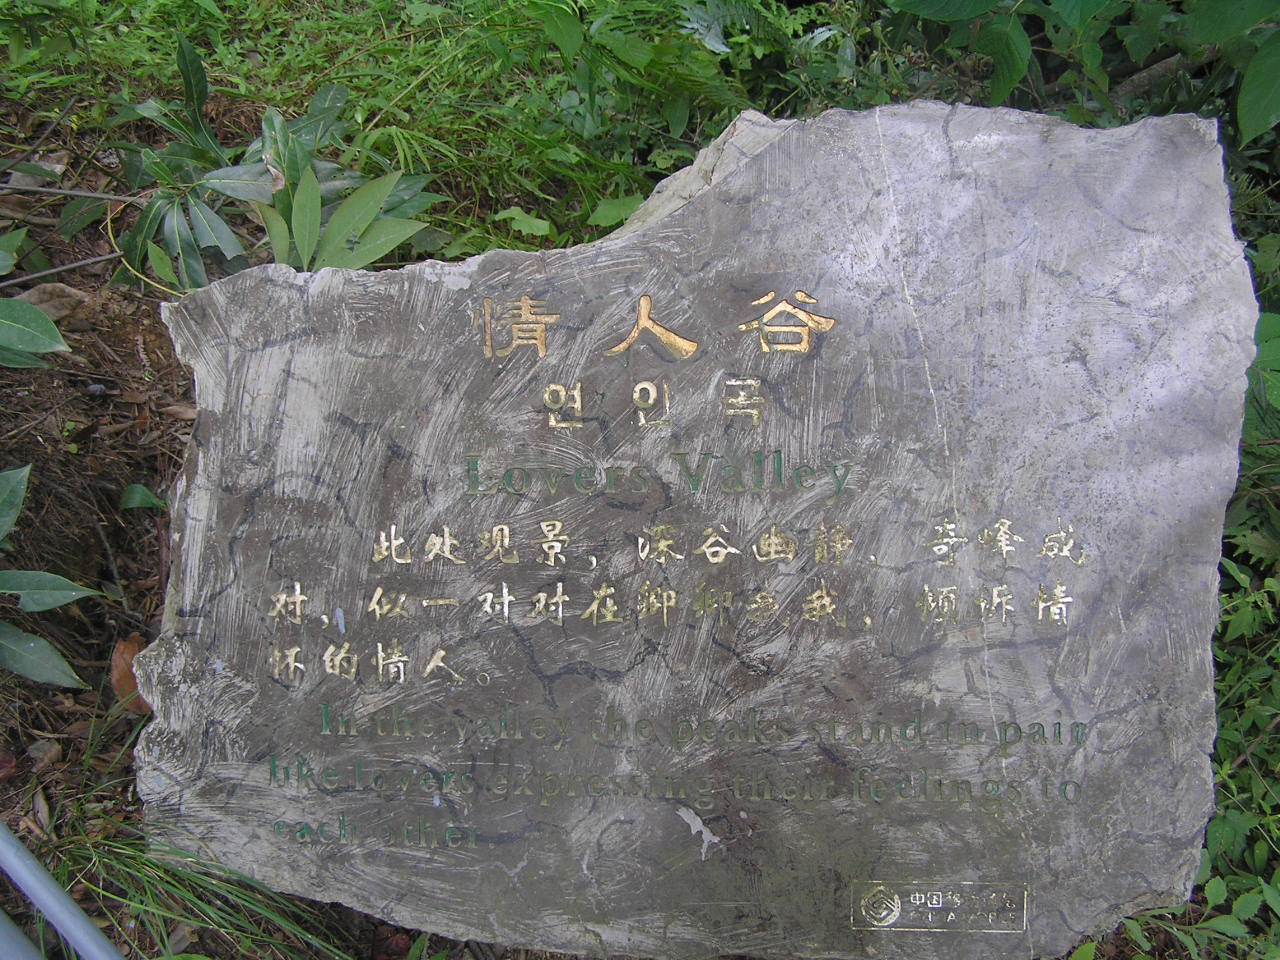 情人谷
연인곡
Lovers Valley
此处观景，深谷幽静、奇峰成
对，似一对对在卿卿我我，倾诉情
怀的情人。
In the valley the peaks stand in pair
like lovers expressing their feelings to
each other
中国移动通信
CHINA MOBILE